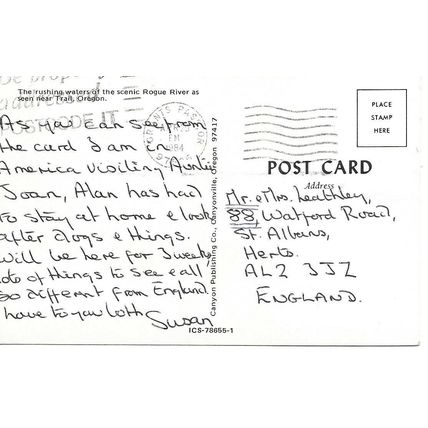 The rushing waters of the scenic Rogue River as
seen near Trail, Oregon.
As you can see from
the card I am in
America visiting Auntie
Joan, Alan has had
to stay at home & look
after dogs & things.
Will be here for 3 weeks
lots of things to see & all
so different from England.
Love to you both
Susan
Canyon Publishing Co., Canyonville, Oregon 97417
GRANTS PASS OR
PM
1984
PLACE
STAMP
HERE
POST CARD
Address
Mr. & Mrs. Leathley,
88, Watford Road,
St. Albans,
Herts.
AL2 3JZ
ENGLAND.
ICS-78655-1